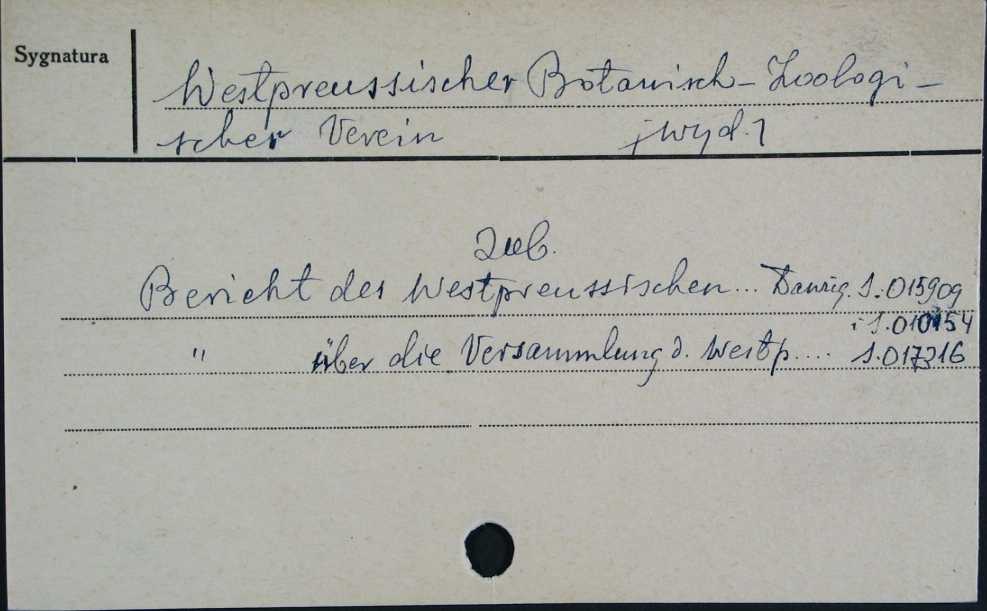 Sygnatura
Westpreussischer Botanisch-Zoologi-
scher Verein [wyd.]
zob.
Bericht des Westpreussischen... Danzig. S.015909
i S.010154
" über die Versammlung d. Westp.... S.017216